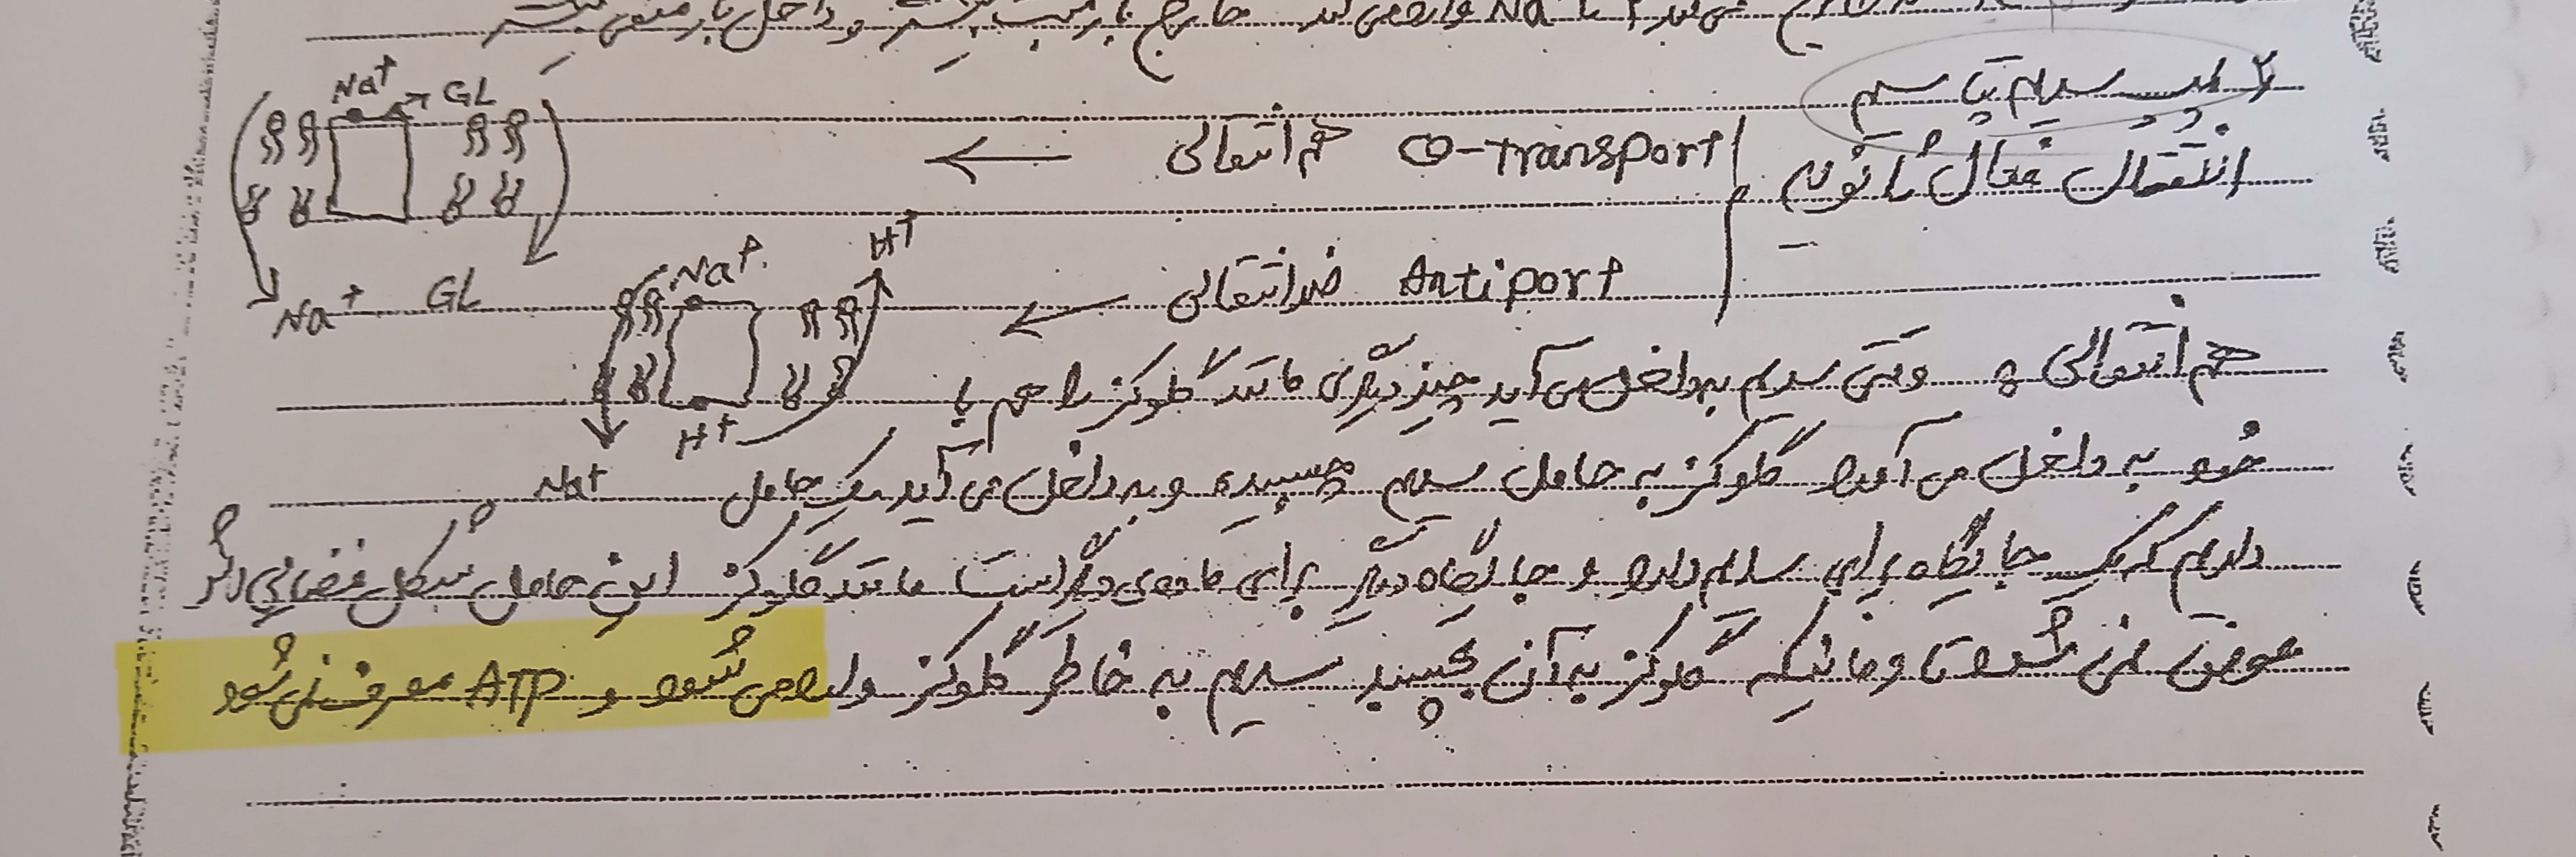 Na خارج بار مثبت و داخل بار منفی
پمپ سدیم پتاسیم
Na+ GL
انتقال فعال ثانویه
Co-transport هم انتقالی ←
Antiport ضد انتقالی ←
Na+ GL
Na+ H+
هم انتقالی : وقتی سدیم به داخل می آید چیز دیگری مانند گلوکز را هم با
H+
خود به داخل می آورد گلوکز به حامل سدیم چسبیده و به داخل می آید یک حامل
Na+
داریم که یک جایگاه برای سدیم دارد و جایگاه دیگر برای ماده ی دیگر است مانند گلوکز این حامل شکل فضایی اش
عوض نمی شود تا زمانیکه گلوکز به آن بچسبند سدیم به خاطر گلوکز وارد می شود و ATP مصرف نمی شود